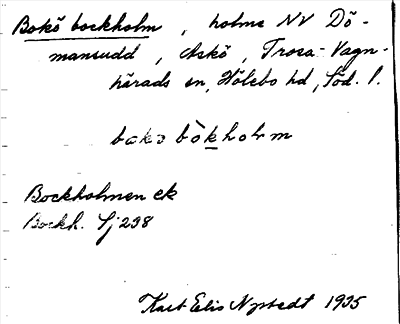 Bokö bockholm, holme NV Dö-
mansudd, Askö, Trosa-Vagn-
härads sn, Hölebo hd, Söd. l.
bokö bòkholm
Bockholmen ek
Bockh. Sj 298
Karl Elis Nystedt 1935